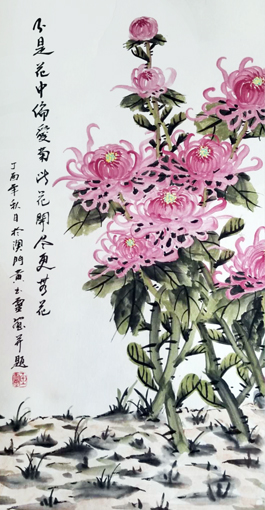 不是花中偏愛菊此花開尽更無花
丁酉年秋日於澳門黃玉靈寫并題